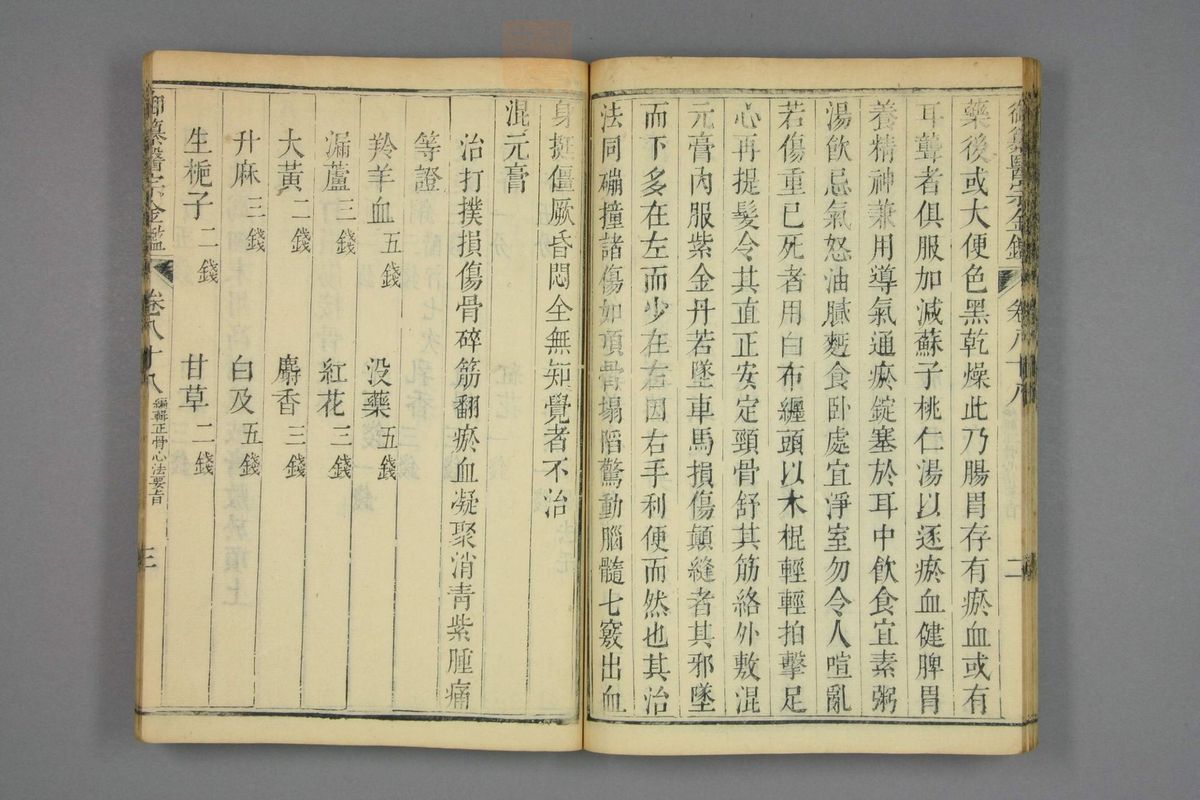 御纂醫宗金鑑 卷八十八 二
藥後或大便色黑乾燥此乃腸胃存有瘀血或有
耳聾者俱服加減蘇子桃仁湯以逐瘀血健脾胃
養精神兼用導氣通瘀錠塞於耳中飲食宜素粥
湯飲忌氣怒油膩麫食卧處宜淨室勿令人喧亂
若傷重已死者用白布纏頭以木棍輕輕拍擊足
心再提髮令其直正安定頸骨舒其筋絡外敷混
元膏內服紫金丹若墜車馬損傷顛縫者其邪墜
而下多在左而少在右因右手利便而然也其治
法同磞撞諸傷如頂骨塌陷驚動腦髓七竅出血
身挺僵厥昏悶全無知覺者不治
混元膏
治打撲損傷骨碎筋翻瘀血凝聚消青紫腫痛
等證
羚羊血五錢 没藥五錢
漏蘆三錢 紅花三錢
大黃二錢 麝香三錢
升麻三錢 白及五錢
生梔子二錢 甘草二錢
御纂醫宗金鑑 卷八十八 編輯正骨心法要旨 三